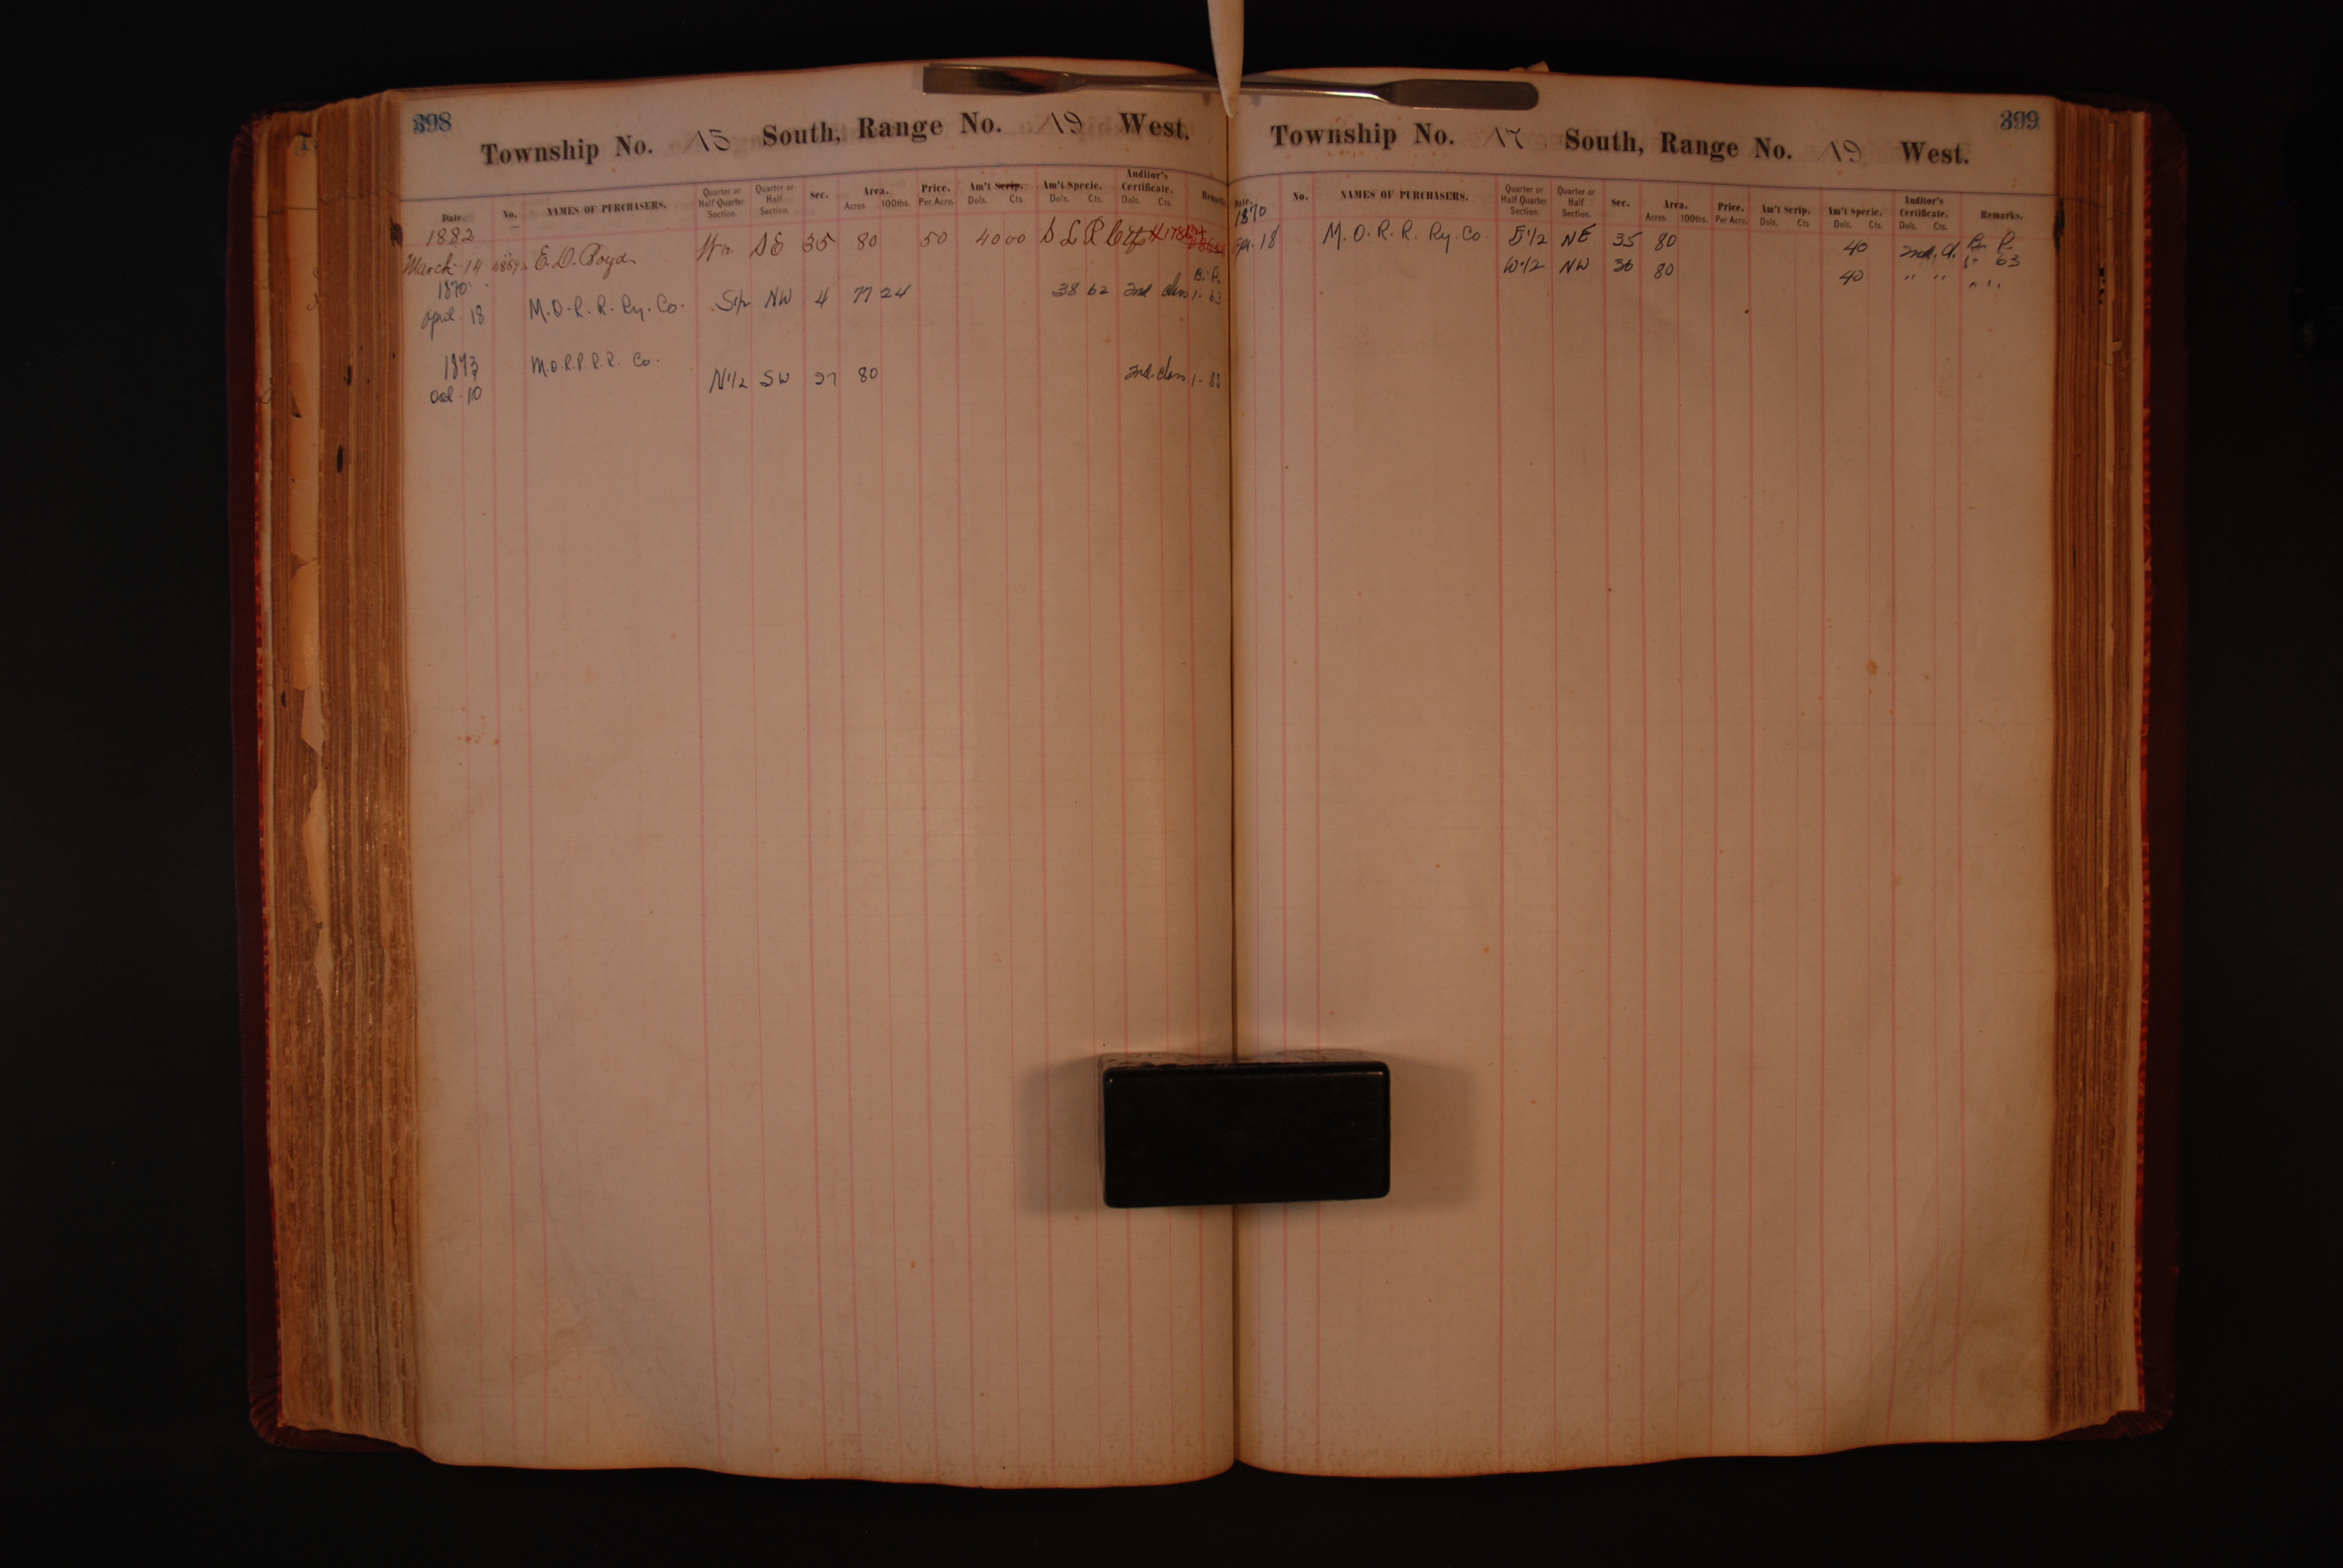 398
Township No. 15 South, Range No. 19 West.
Date. No. NAMES OF PURCHASERS. Quarter or Half Quarter Section. Quarter or Half Section. Sec. Area. Acres 100ths. Price. Per Acre. Am't Scrip. Dols. Cts Am't Specie. Dols. Cts. Auditor's Certificate. Dols. Cts. Remarks
1882
March 14 E. D. Boyd W1/2 SE 35 80 50 40 00 S L R
1870 B. P.
April 18 M. O. R. R. Ry. Co. S1/2 NW 4 77 24 38 62 2nd class 1- 63
1873 M. O. R. R. R. Co.
Oct. 10 N1/2 SW 27 80 2nd class 1-
399
Township No. 17 South, Range No. 19 West.
Date. No. NAMES OF PURCHASERS. Quarter or Half Quarter Section. Quarter or Half Section. Sec. Area. Acres 100ths. Price. Per Acre. Am't Scrip. Dols. Cts Am't Specie. Dols. Cts. Auditor's Certificate. Dols. Cts. Remarks.
1870
Apr. 18 M. O. R. R. Ry. Co. E1/2 NE 35 80 40 2nd. Cl. B. P. 1- 63
W1/2 NW 36 80 40 " " " "